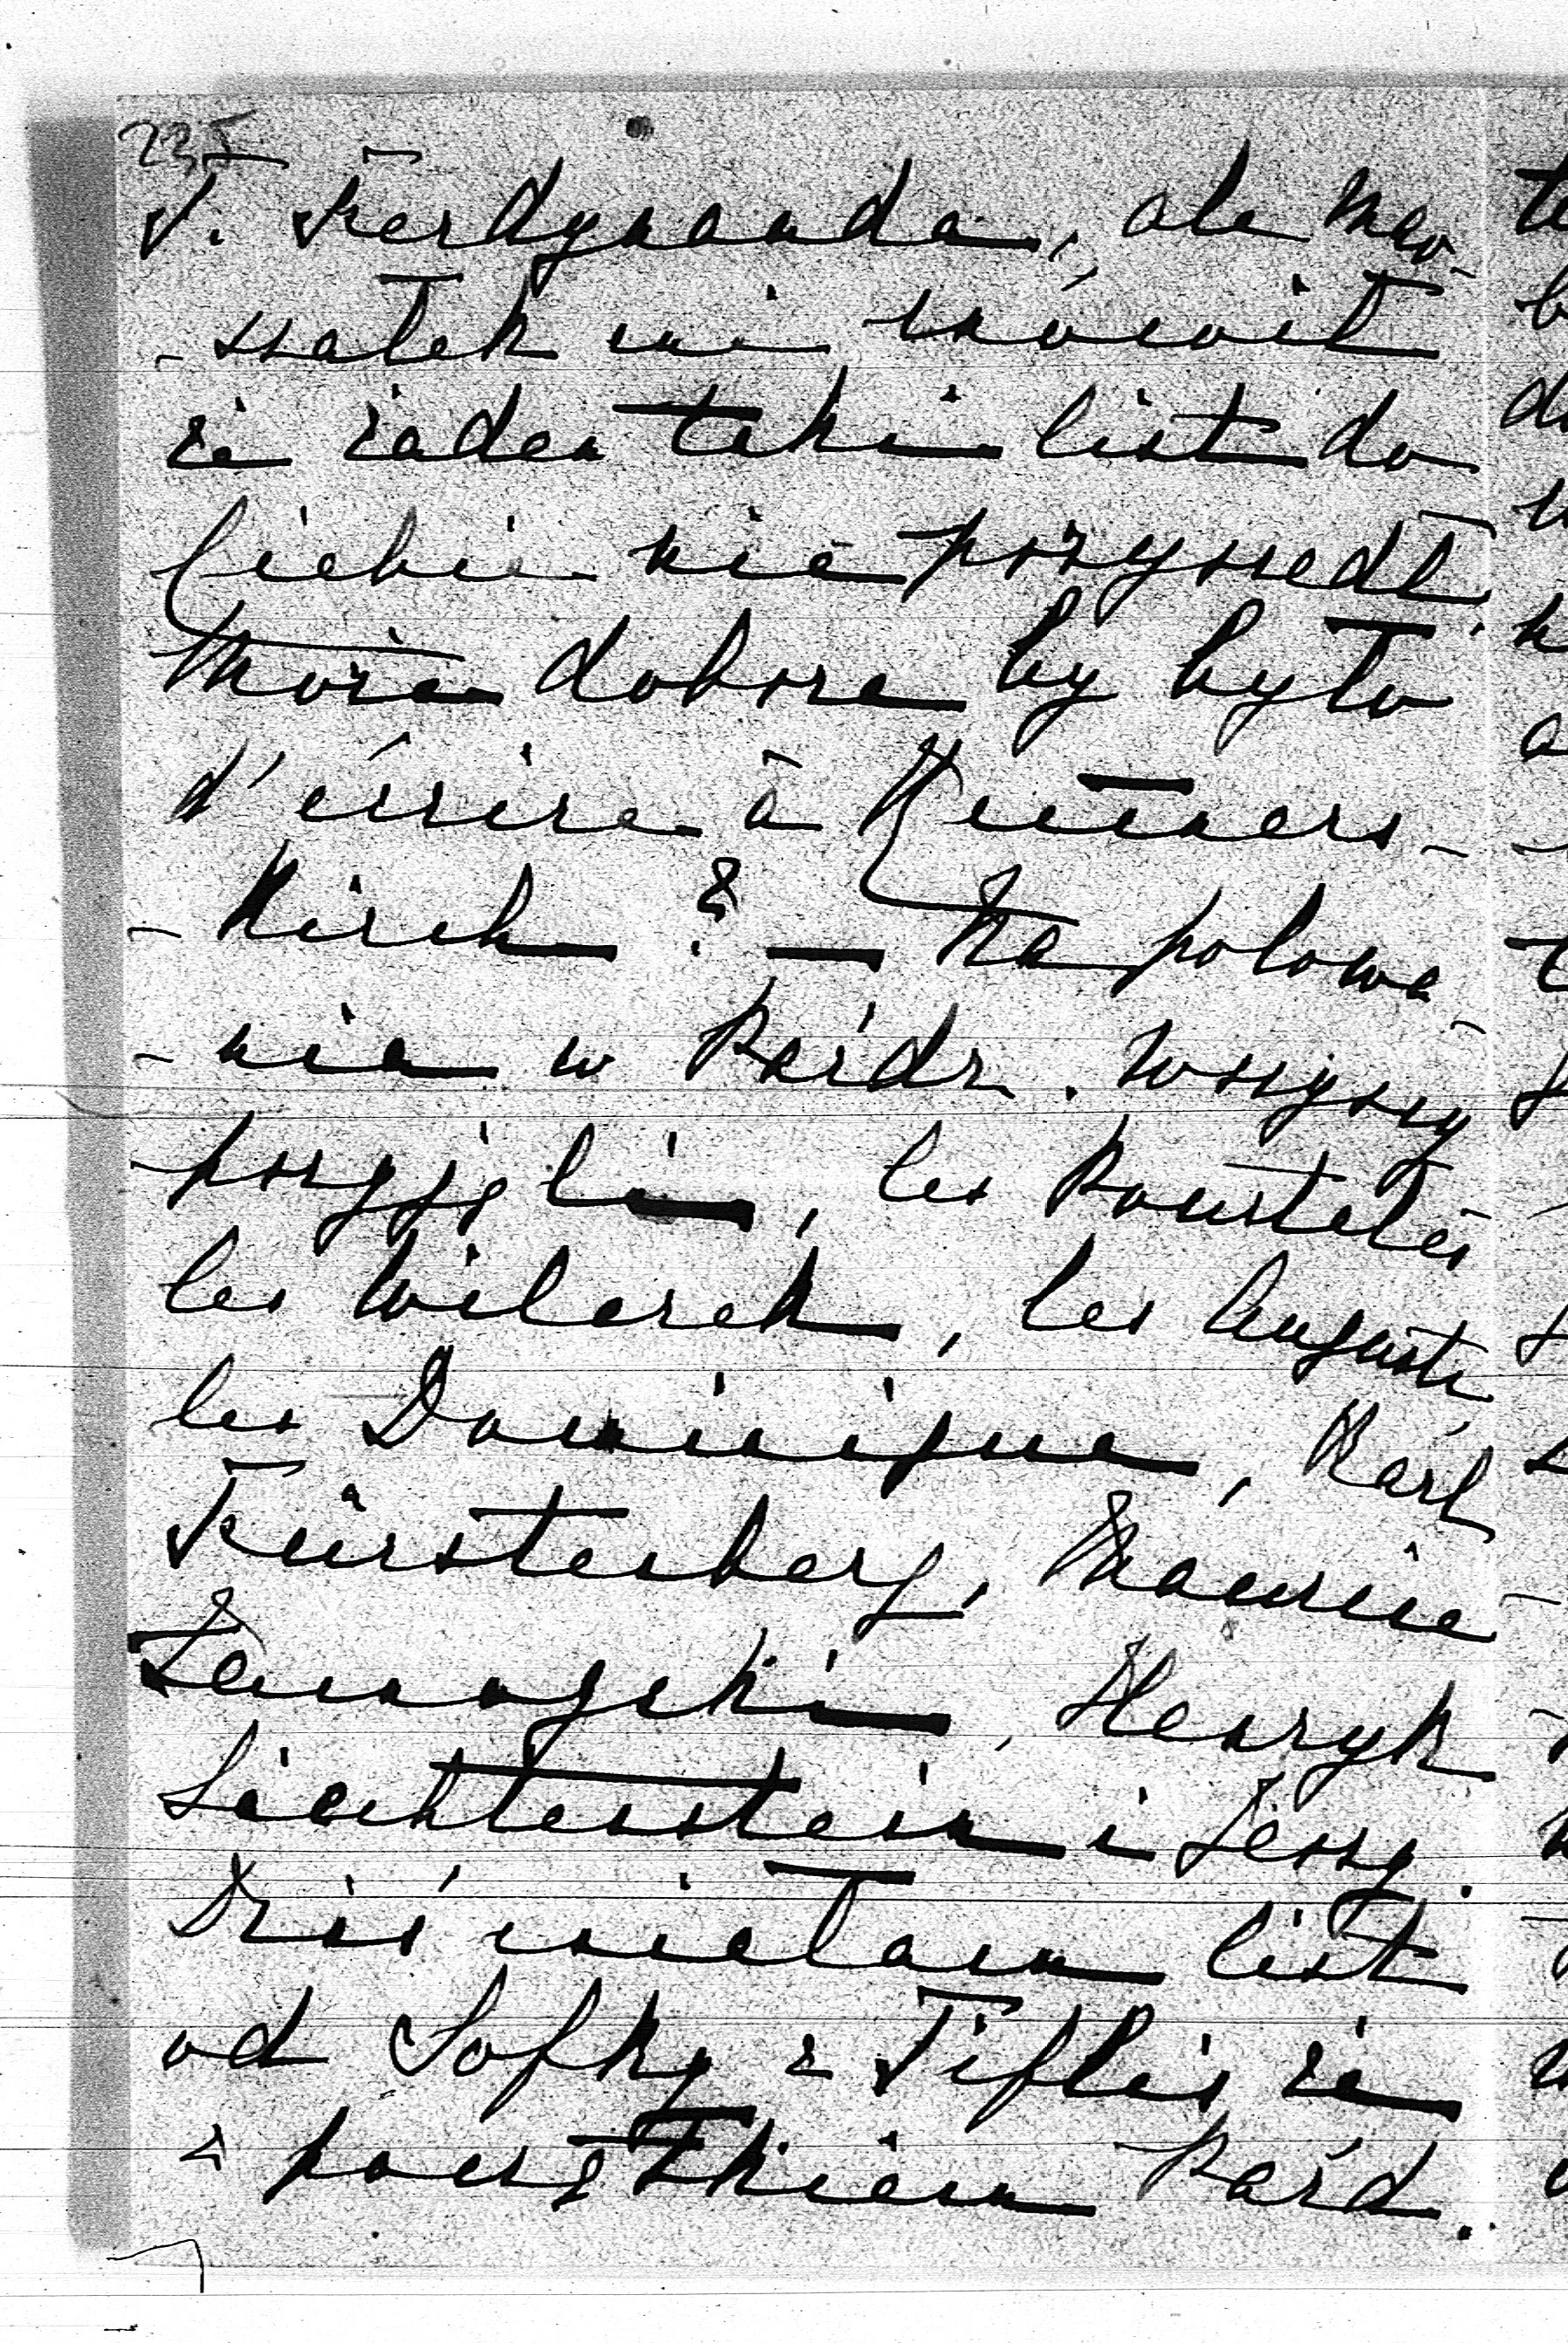 235
F. Ferdynanda, ale mar-
-szałek mi mówił
że żaden taki list do
Ciebie nie przyszedł.
Może dobrze by było
d'écrire à Küners-
-Kirch? — Na polowa-
-nie w Paźdz. wszyscy
przyjęli, les Pourtalès
les Wilczek, les Auguste
les Dominique, Karl
Fürstenberg, Maurice
Zamoyski, Henryk
Liechtenstein i Jerzy.
Dziś miałam list
od Sofky z Tiflis że
z początkiem Paźd.